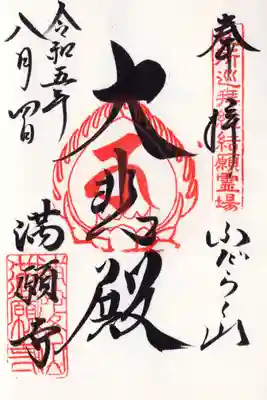 奉拝
所巡拝総結願霊場
ふだらく山
大悲殿
令和五年
八月四日
満願寺